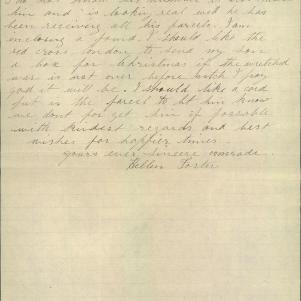 him and is lookin real well he has
been receiving all his parcels. I am
enclosing a pound. I should like the
red cross london to send my son
a box for Christmas if the wretched
war is not over before witch I pray
god it will be. I should like a card
put in the parcel to let him know
we dont for get him if possable
with kindest regards and best
wishes for happier times.
yours ever sincere comrade
Hellen Foster